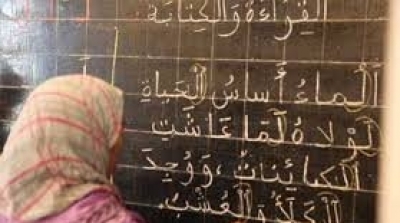 القِرَاءَةُ وَالكِتَابَةُ
اَلْمَاءُ أَسَاسُ الْحَيَاةِ
لَوْلَاهُ لَمَا عَاشَتِ
الْكَائِنَاتُ، وَوُجِدَ
الْكَلَأُ وَالْعُشْبُ.